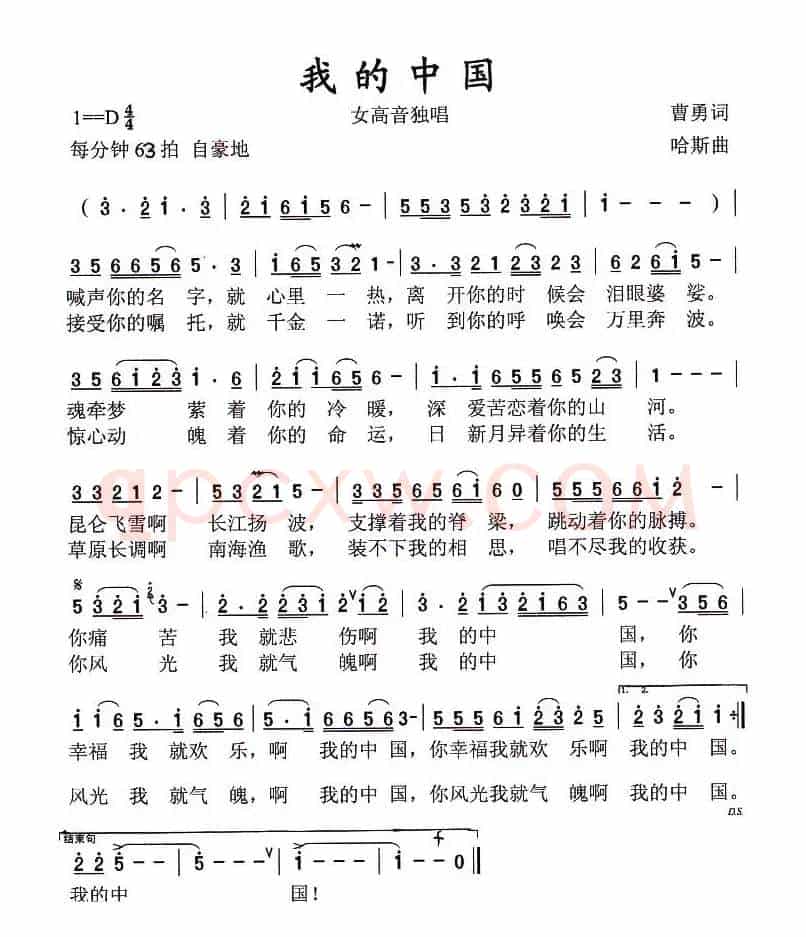 我的中国
1==D 4/4 女高音独唱 曹勇词
每分钟 63 拍 自豪地 哈斯曲
( 3 · 2 1 · 3 | 2 1 6 1 5 6 - | 5 5 3 5 3 2 3 2 1 | 1 - - - ) |
3 5 6 6 5 6 5 · 3 | 1 6 5 3 2 1 - | 3 · 3 2 1 2 3 2 3 | 6 2 6 1 5 - |
喊声你的名 字，就 心里 一 热，离 开你的时 候会 泪眼婆 娑。
接受你的嘱 托，就 千金 一 诺，听 到你的呼 唤会 万里奔 波。
3 5 6 1 2 3 1 · 6 | 2 1 1 6 5 5 6 - | 1 · 1 6 5 5 6 5 2 3 | 1 - - - |
魂牵梦 萦着 你的 冷 暖， 深 爱苦恋着你的山 河。
惊心动 魄着 你的 命 运，日 新月异着你的生 活。
3 3 2 1 2 - | 5 3 2 1 5 - | 3 5 6 5 6 5 6 1 6 0 | 5 5 5 6 6 1 2 - |
昆仑飞雪啊 长江扬 波， 支撑着我的脊 梁， 跳动着你的脉搏。
草原长调啊 南海渔 歌，装不下我的相 思，唱不尽我的收获。
5 3 2 1 2 3 - | 2 · 2 2 3 1 2 V 1 2 | 3 · 2 1 2 3 2 1 6 3 | 5 - - V 3 5 6 |
你痛 苦 我 就悲 伤啊 我 的中 国，你
你风 光 我 就气 魄啊 我 的中 国，你
1 1 6 5 · 1 6 5 6 | 5 · 1 3 5 6 5 6 3 - | 5 5 5 5 6 1 2 3 2 5 | 2 3 2 1 1 ÷ :||
1. 2.
幸福 我 就欢 乐，啊 我的中 国，你幸福我就欢 乐啊 我的中 国。
风光 我 就气 魄，啊 我的中 国，你风光我就气 魄啊 我的中 国。
D.S.
结束句
2 2 5 - - | 5 - - - V | 1 - - - | 1 - - 0 ||
f
我的中 国！
qpcxw.COM